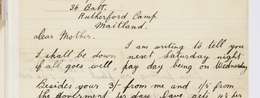 36 Batt.
Rutherford Camp
Maitland.
Dear Mother.
I am writing to tell you
I shall be down next Saturday night
if all goes well, pay day being on Wednesday
Besides your 3/- from me and 1/5 from
the Government per day. Dave gets 4½ per